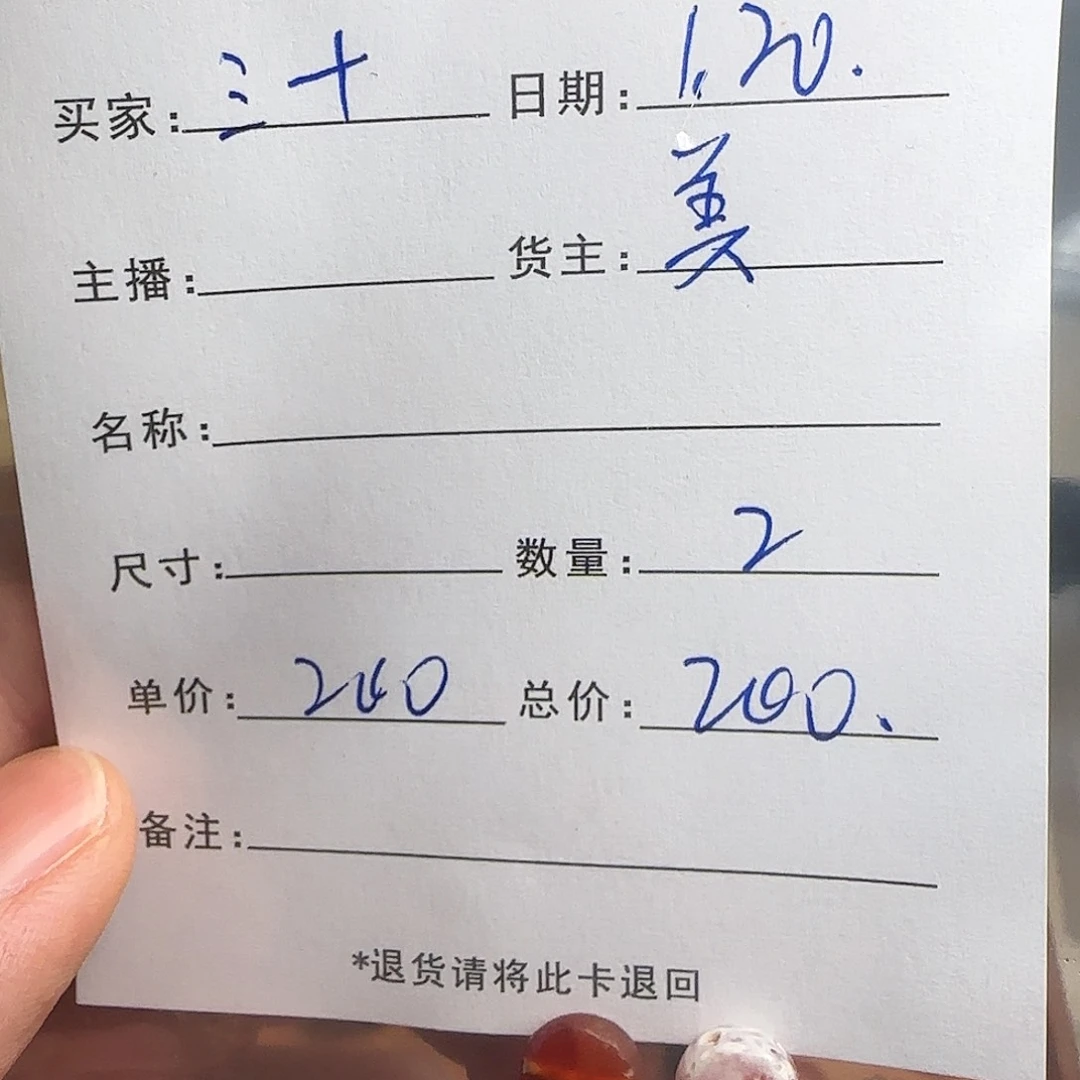 买家: 三十 日期: 1.20.
主播: 货主: 美
名称:
尺寸: 数量: 2
单价: 200 总价: 200.
备注:
*退货请将此卡退回